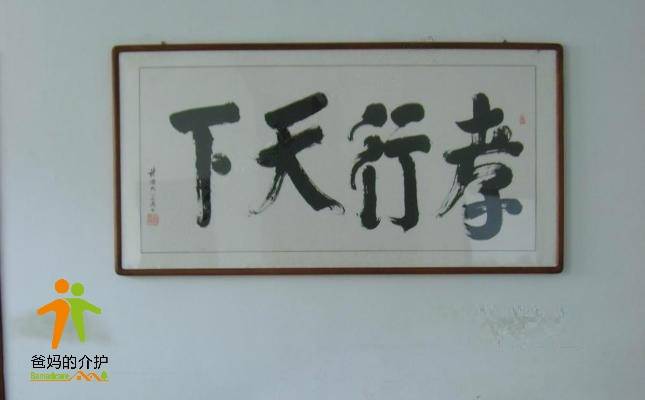 孝行天下
爸妈的介护
Bamadicare